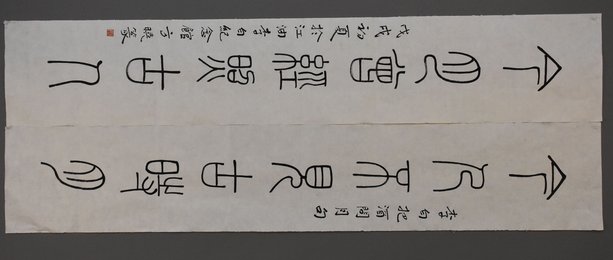 李白把酒問月句
今人不見古時月
今月曾經照古人
戊戌初夏於江油李白紀念館